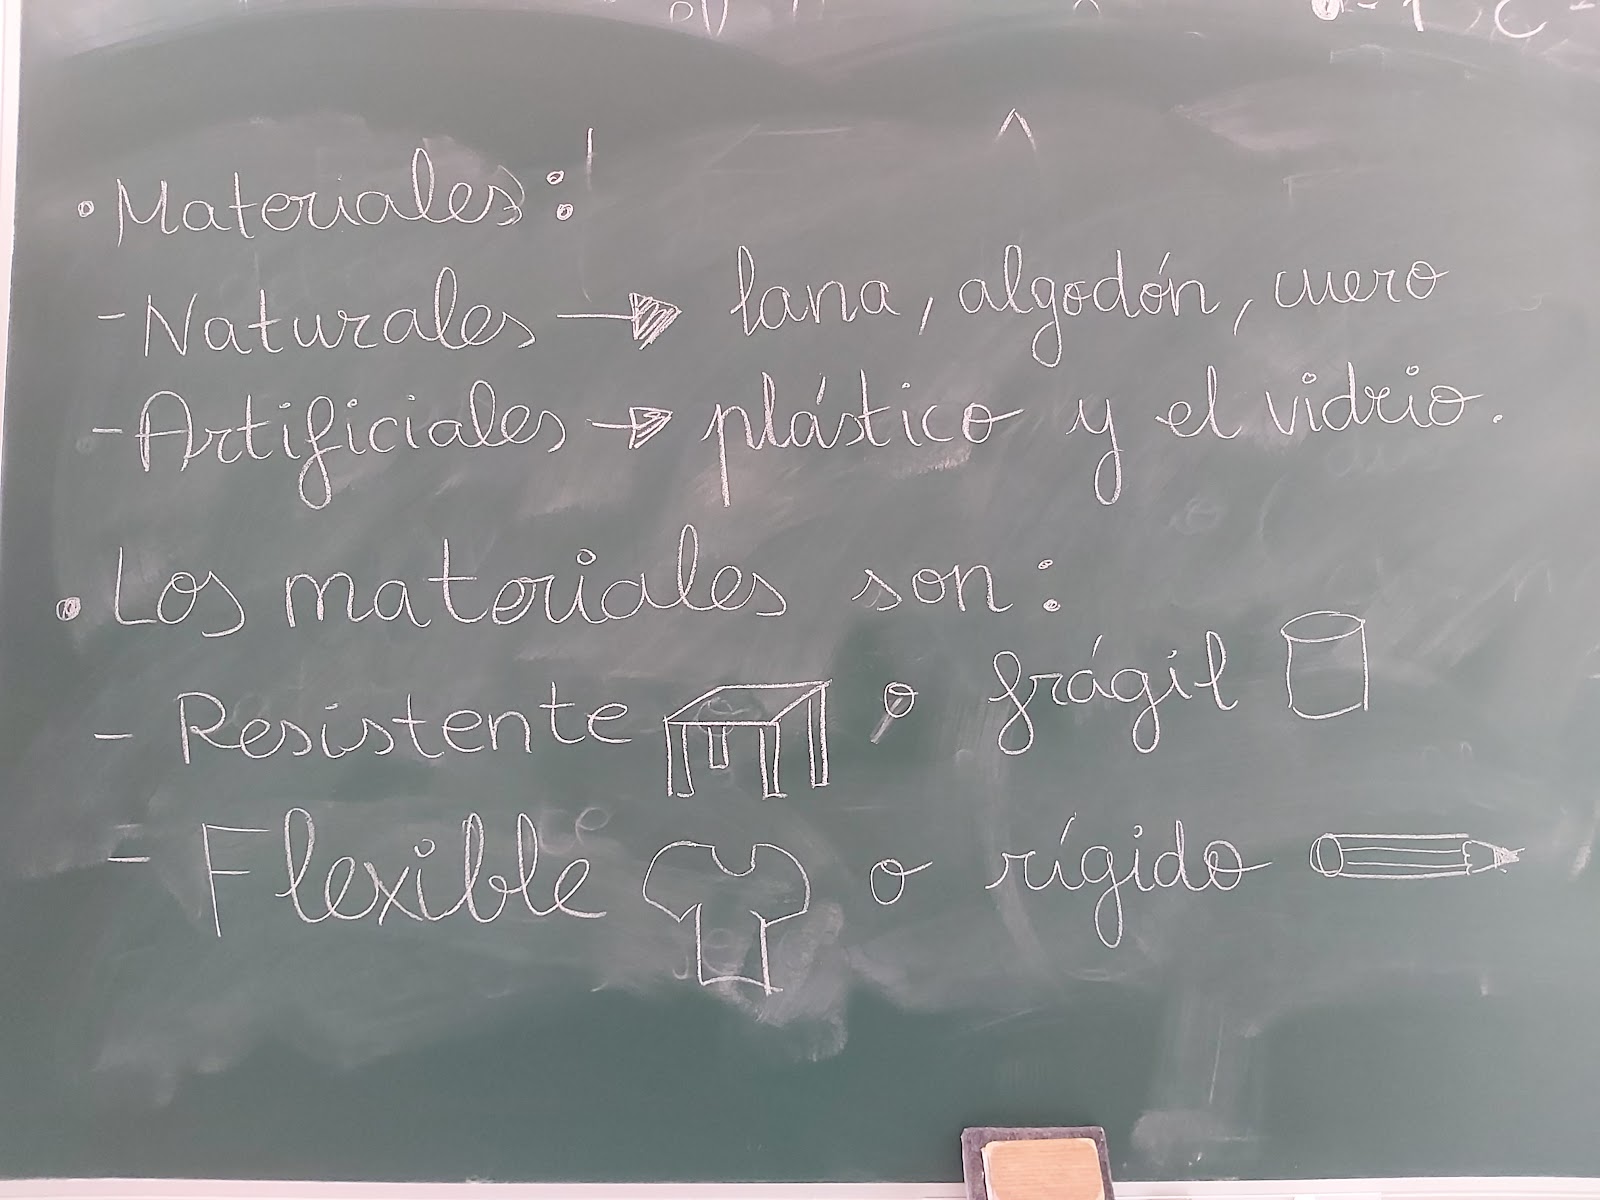 • Materiales:
- Naturales → lana, algodón, cuero
- Artificiales → plástico y el vidrio.
• Los materiales son:
- Resistente o frágil
- Flexible o rígido